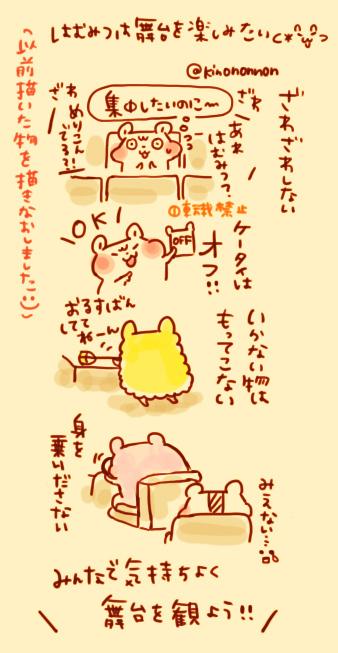 はむみつは舞台を楽しみたい
@kinononnon
(以前描いた物を描きなおしました
ざわざわしない
集中したいのに〜
ざわ
ざわ
あれ
はむみつっ?
めりこん
でる?!
転載禁止
OK!
OFF
ケータイは
オフ!!
いかない物は
もってこない
おるすばん
してて
ねーん
身を
乗りださない
みえない…
みんなで気持ちよく
舞台を観よう!!